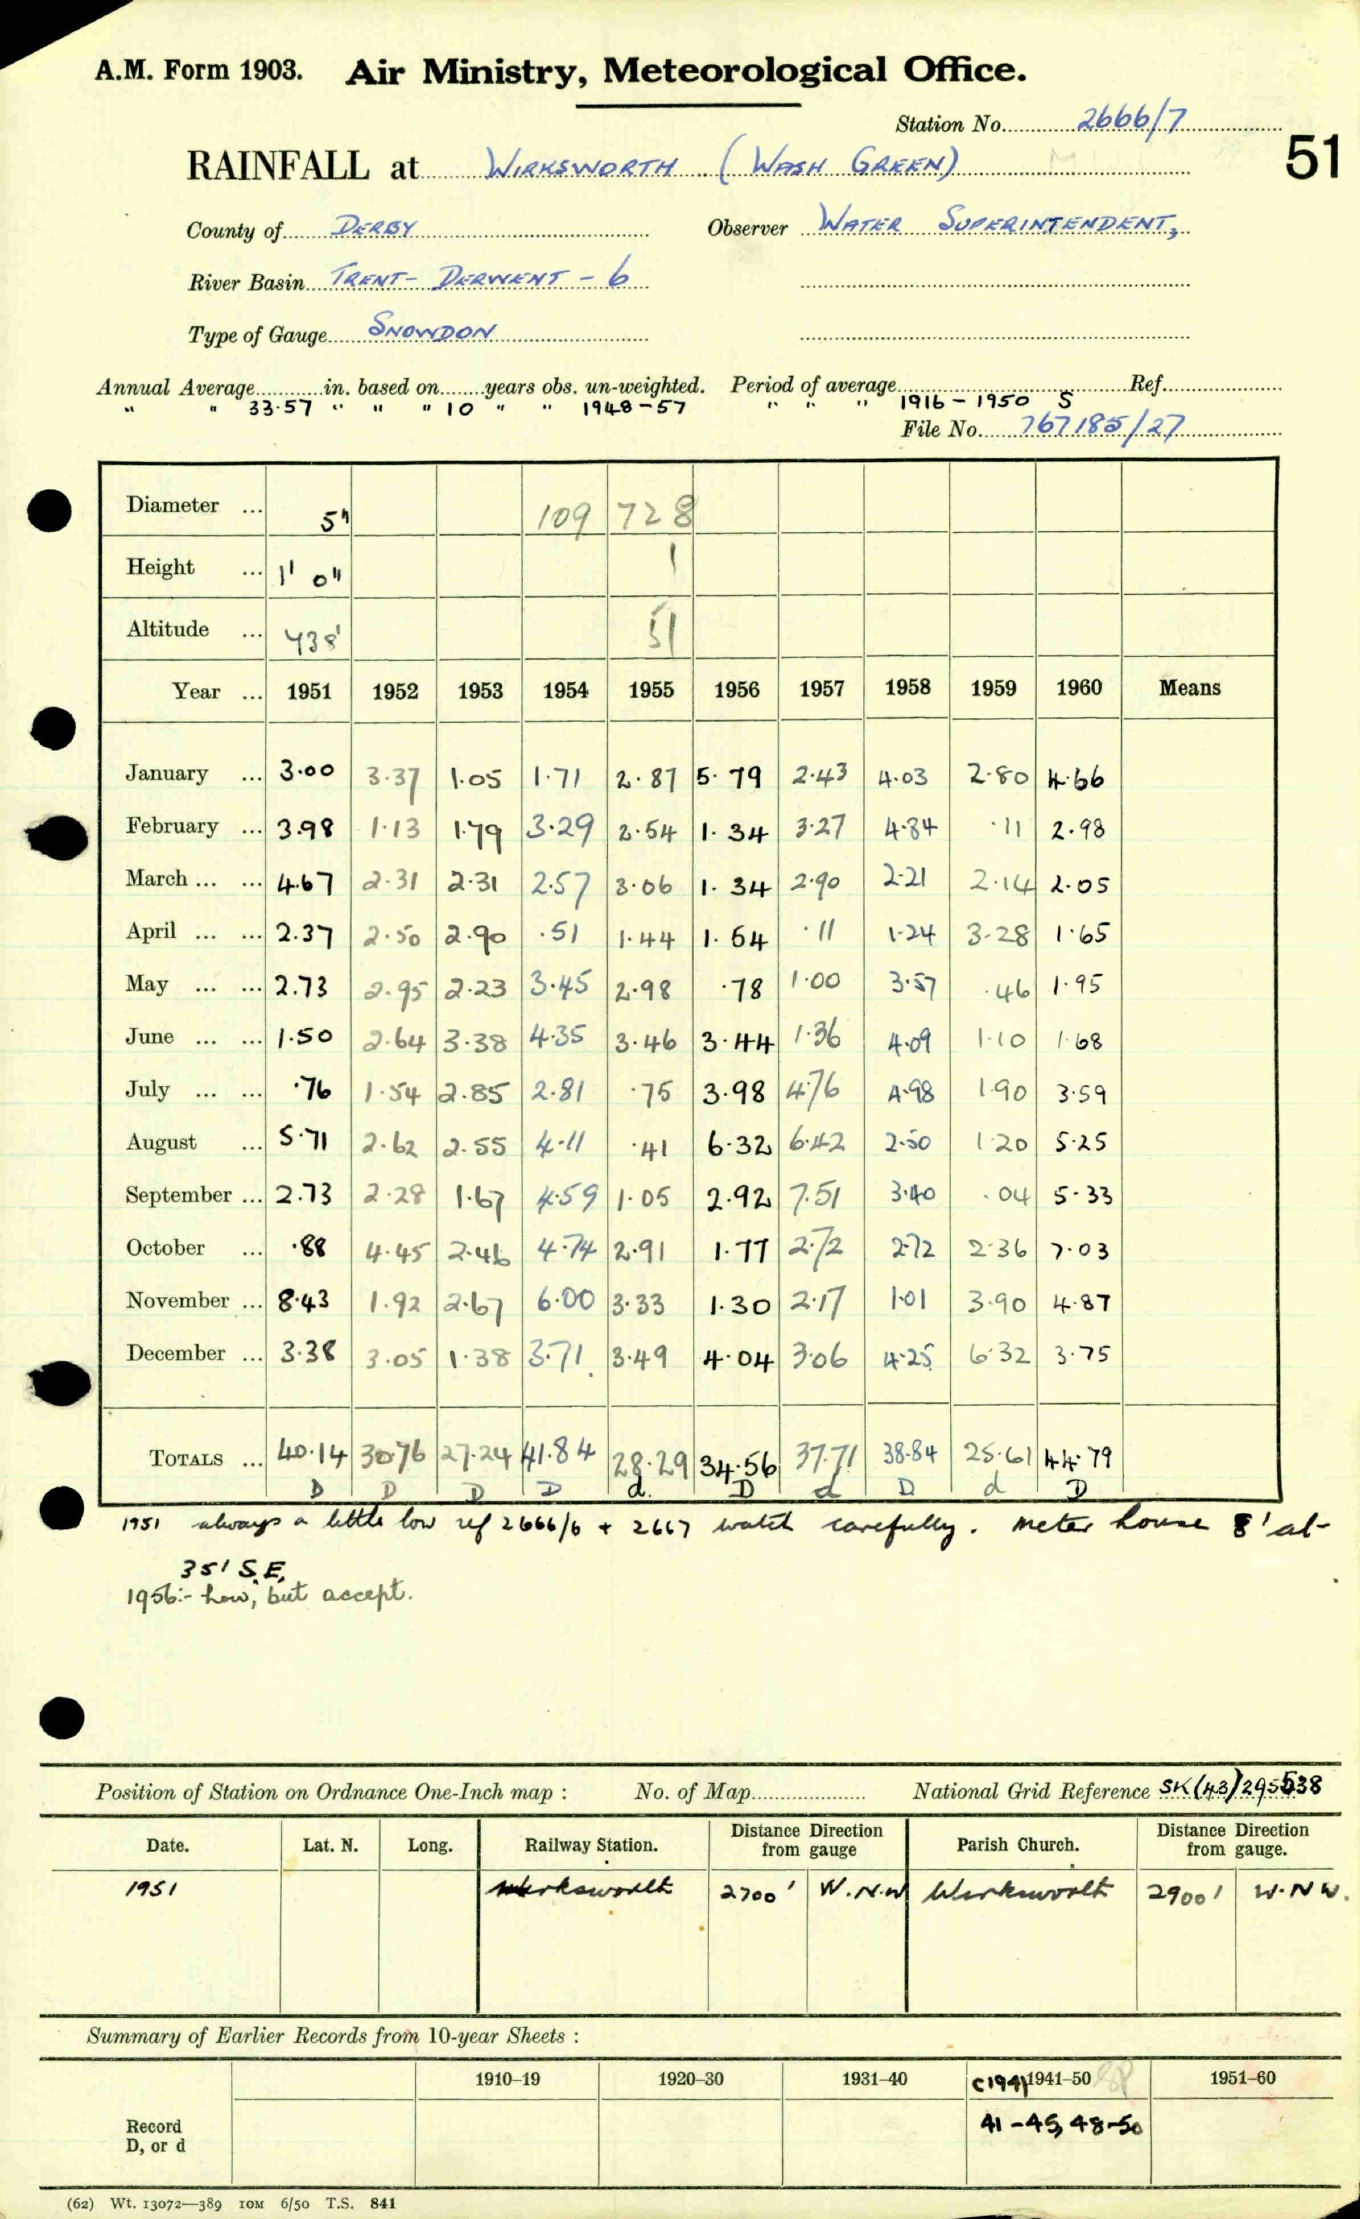 A.M. Form 1903. Air Ministry, Meteorological Office.
Station No. 2666/7
51
RAINFALL at WIRKSWORTH (WASH GREEN)
County of DERBY Observer WATER SUPERINTENDENT,
River Basin TRENT- DERWENT - 6
Type of Gauge SNOWDON
Annual Average in. based on years obs. un-weighted. Period of average Ref.
" " 33.57 " " " 10 " " 1948-57 " " " 1916-1950 S
File No. 767185/27
Diameter ... 5" 109 728
Height ... 1' 0" 1
Altitude ... 438' 51
Year ... 1951 1952 1953 1954 1955 1956 1957 1958 1959 1960 Means
January ... 3.00 3.37 1.05 1.71 2.87 5.79 2.43 4.03 2.80 4.66
February ... 3.98 1.13 1.79 3.29 2.54 1.34 3.27 4.84 .11 2.98
March ... ... 4.67 2.31 2.31 2.57 3.06 1.34 2.90 2.21 2.14 2.05
April ... ... 2.37 2.50 2.90 .51 1.44 1.54 .11 1.24 3.28 1.65
May ... ... 2.73 2.95 2.23 3.45 2.98 .78 1.00 3.57 .46 1.95
June ... ... 1.50 2.64 3.38 4.35 3.46 3.44 1.36 4.09 1.10 1.68
July ... ... .76 1.54 2.85 2.81 .75 3.98 4.76 4.98 1.90 3.59
August ... 5.71 2.62 2.55 4.11 .41 6.32 6.42 2.50 1.20 5.25
September ... 2.73 2.28 1.67 4.59 1.05 2.92 7.51 3.40 .04 5.33
October ... .88 4.45 2.46 4.74 2.91 1.77 2.72 2.72 2.36 7.03
November ... 8.43 1.92 2.67 6.00 3.33 1.30 2.17 1.01 3.90 4.87
December ... 3.38 3.05 1.38 3.71 3.49 4.04 3.06 4.25 6.32 3.75
TOTALS ... 40.14 30.76 27.24 41.84 28.29 34.56 37.71 38.84 25.61 44.79
D D D D d. D d D d D
1951 always a little low ref 2666/6 + 2667 watch carefully. Meter house 8' at
35' S.E.
1956:- Low, but accept.
Position of Station on Ordnance One-Inch map : No. of Map National Grid Reference SK(43)295538
Date. Lat. N. Long. Railway Station. Distance from gauge Direction Parish Church. Distance from gauge. Direction
1951 Wirksworth 2700' W.N.W Wirksworth 2900' W.N.W.
Summary of Earlier Records from 10-year Sheets :
1910–19 1920–30 1931–40 C1941 1941–50 1951–60
Record D, or d 41-45, 48-50
(62) Wt. 13072—389 10M 6/50 T.S. 841